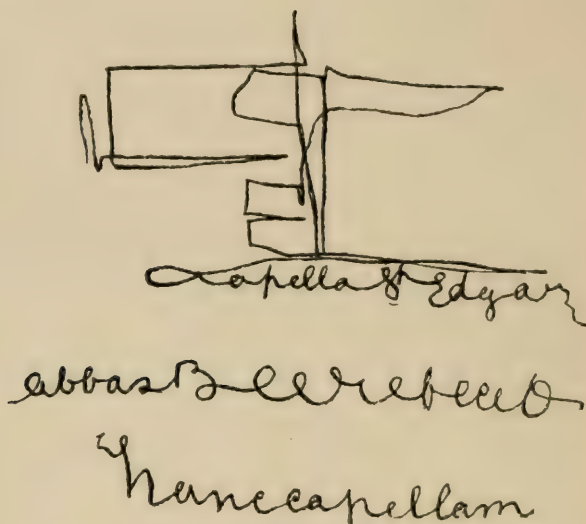 Capella St Edgar
abbas Beere fecit
hanc capellam